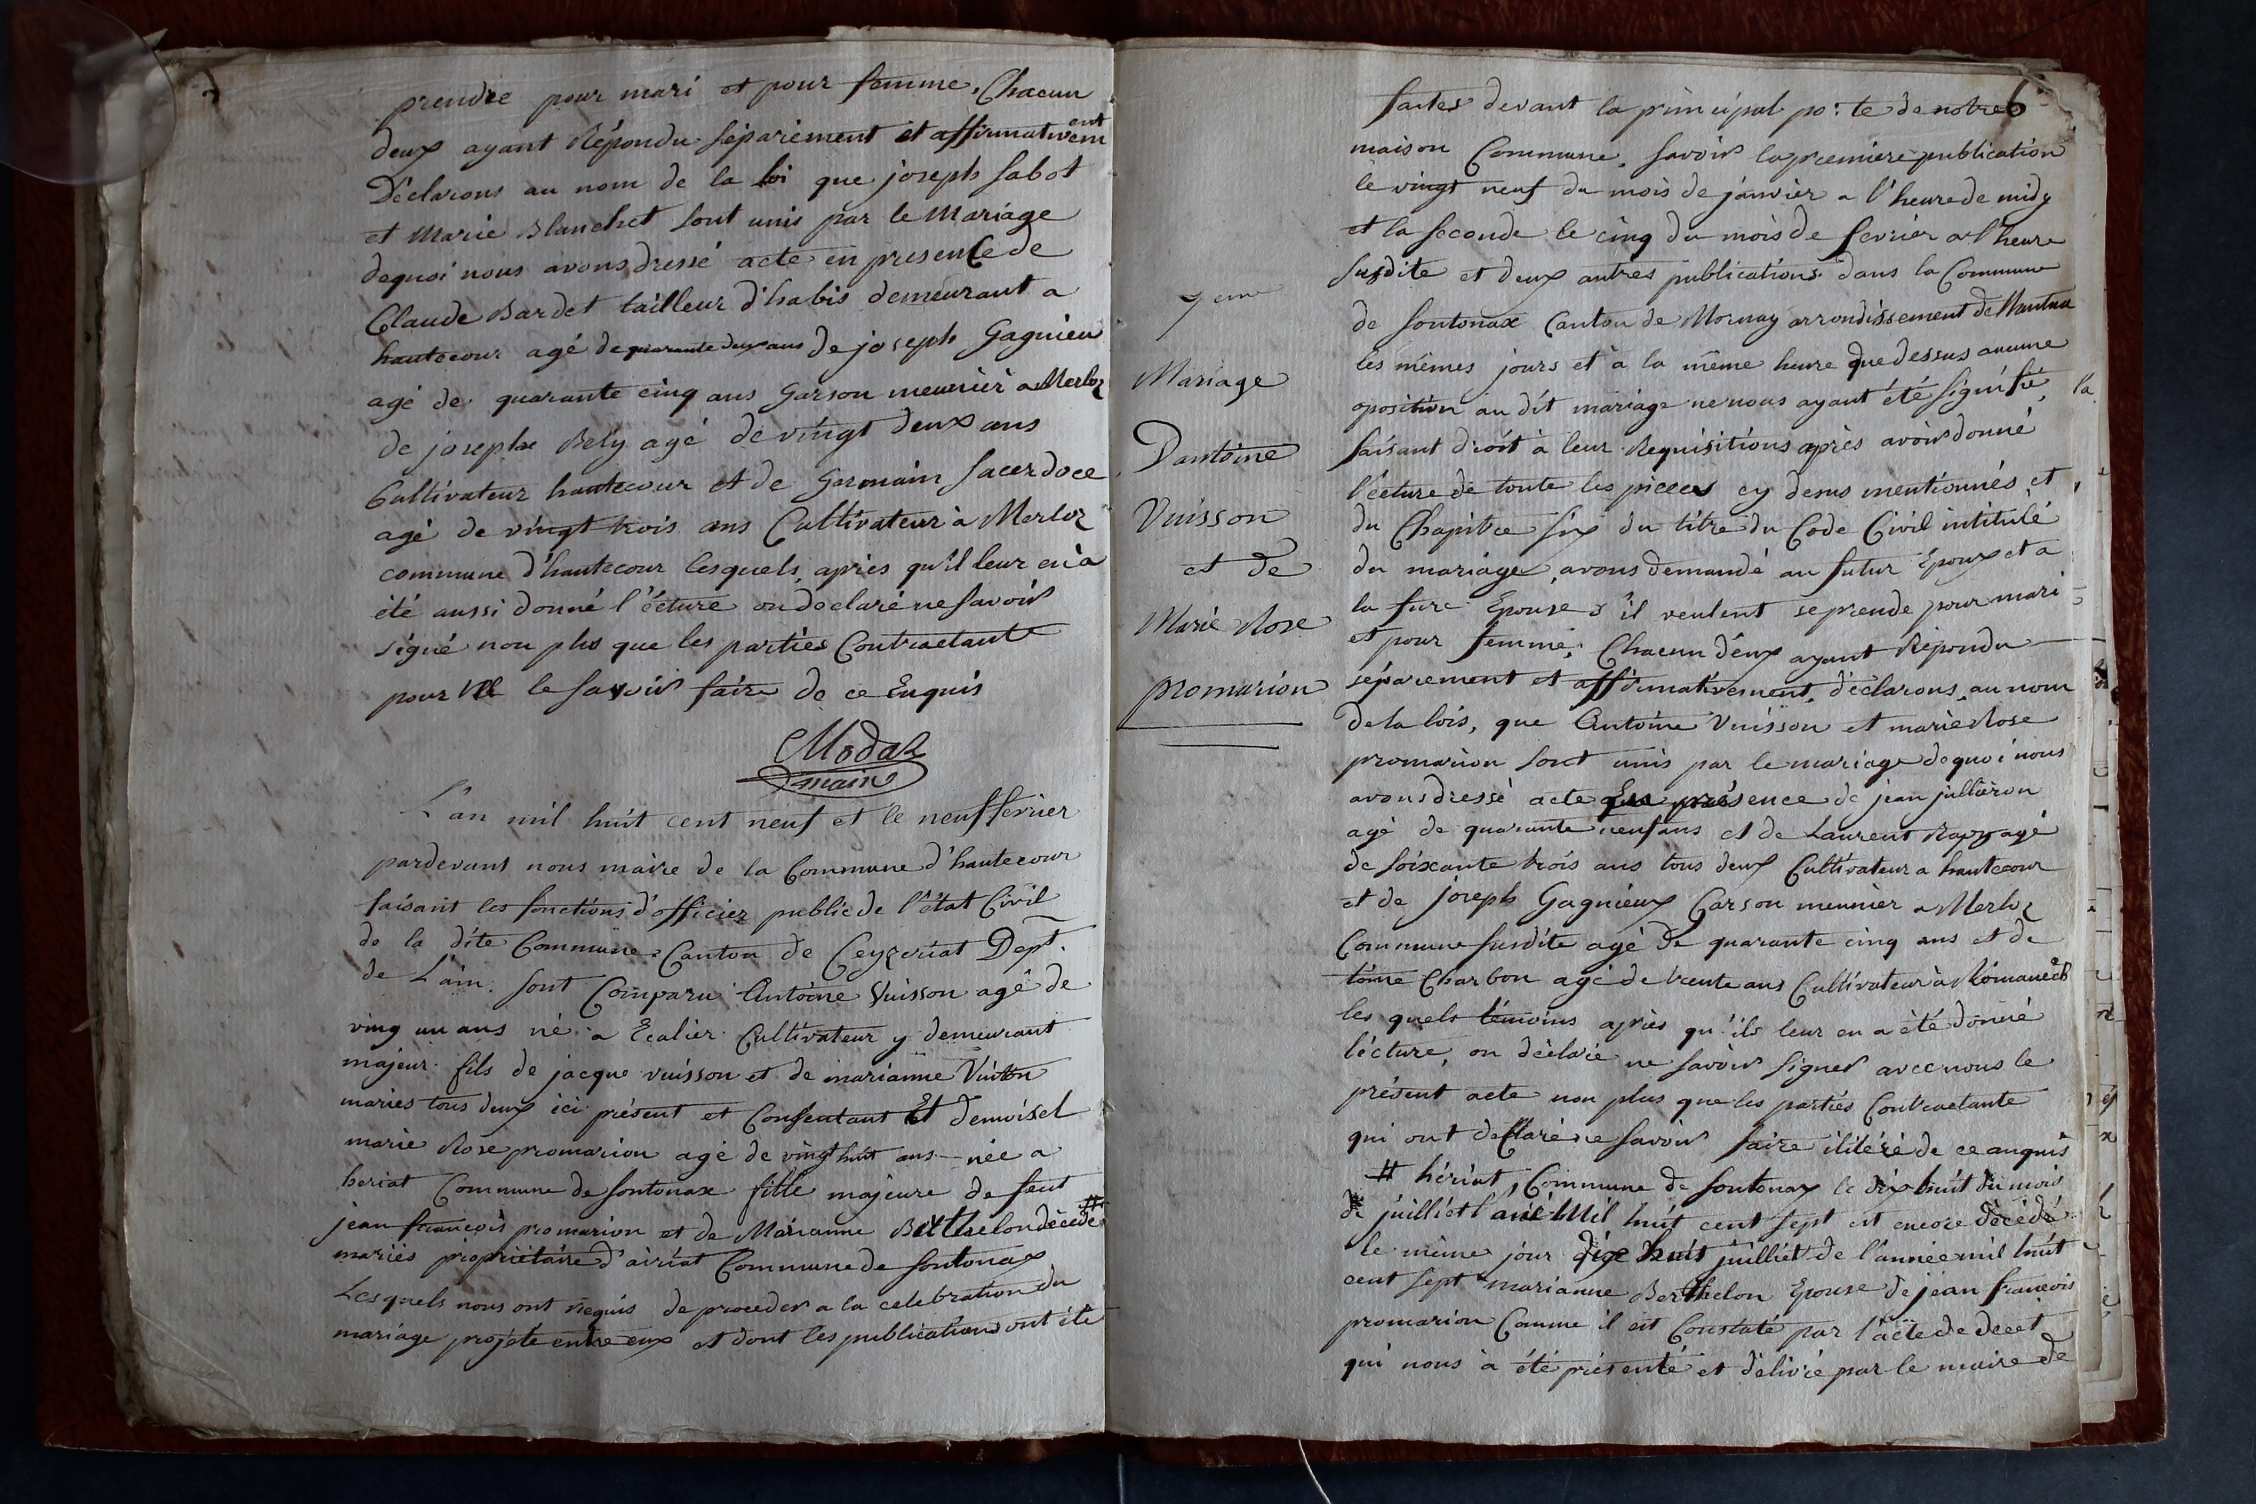 prendre pour mari et pour femme, Chacun
deux ayant Répondu séparément et affirmativement
Déclarons au nom de la loi que joseph sabot
et Marie Blanchet sont unis par le Mariage
dequoi nous avons dressé acte en presence de
Claude Bardet tailleur d'habis demeurant a
hautecour agé de quarante deux ans de joseph Gagnieu
agé de quarante cinq ans Garson meunièr a Merloz
de josephe Bely agé de vingt deux ans
Cultivateur hautecour et de Germain sacerdoce
agé de vingt trois ans Cultivateur à Merloz
commune d'hautecour lesquels, après qu'il leur en à
été aussi donné l'écture on déclaré ne savoir
signé non plus que les parties Contractante
pour le savoir faire de ce Enquis
Modas
maire
L'an mil huit cent neuf et le neuf février
pardevant nous maire de la Commune d'hautecour
faisant les fonctions d'officier public de l'état Civil
de la dite Commune Canton de Ceyzeriat Dept.
de L'ain. sont Comparu Antoine Vuisson agé de
ving un ans né a Ecalier Cultivateur y demeurant
majeur fils de jacque vuisson et de marianne Vuiton
mariés tous deux ici présent et Consentant Et demoisel
marie Rose promarion agé de vingt huit ans née a
heriat Commune de sontonax fille majeure de feut
jean françois promarion et de Marianne Berthelon décédé #
mariés propriétaire d'airiat Commune de sontonax
Lesquels nous ont requis de proceder a la celebration du
mariage projeté entre eux et dont les publications ont été
6
7eme
Mariage
Dantoine
Vuisson
et de
Marie Rose
promarion
faites devant la principal po:te de notre
maison Commune, savoir la premiere publication
le vingt neuf du mois de janvier a l'heure de midy
et la seconde le cinq du mois de fevrier a l'heure
susdite et deux autres publications dans la Commune
de sontonax Canton de Mornay arrondissement de Nantua
les mêmes jours et à la même heure que dessus aucune
oposition au dit mariage ne nous ayant été signifié,
faisant droit à leur Requisitions après avoir donné
l'écture de toute les pieces cy desus mentionnés et
du Chapitre six du titre du Code Civil intitulé
du mariage, avons demandé au futur Epoux et a
la fure Epouse s'il veulent se prende pour mari
et pour femme, Chacun d'eux ayant Répondu
séparement et affirmativement, déclarons au nom
de la lois, que Antoine Vuisson et marie Rose
promarion sont unis par le mariage dequoi nous
avons dressé acte En présence de jean jullieron
agé de quarante neuf ans et de Laurent Rapy agé
de soixante trois ans tous deux Cultivateur a hautecour
et de joseph Gagnieux Garson meunier a Merloz
Commune susdite agé de quarante cinq ans et de
toine Charbon agé de trente ans Cultivateur à Romanèch
les quels témoins après qu'ils leur en a été donné
lécture, on déclaré ne savoir signer avec nous le
présent acte non plus que les parties Contractante
qui ont déclaré ne savoir faire ilitéré de ce anquis
# hériat, Commune de sontonax le dix huit du mois
de juilliet l'ané Mil huit cent sept et encore décédé
le même jour dix huit juilliet de l'année mil huit
cent sept marianne Berthelon Epouse de jean françois
promarion Comme il est Constaté par l'acte de décet
qui nous à été présenté et délivré par le maire de